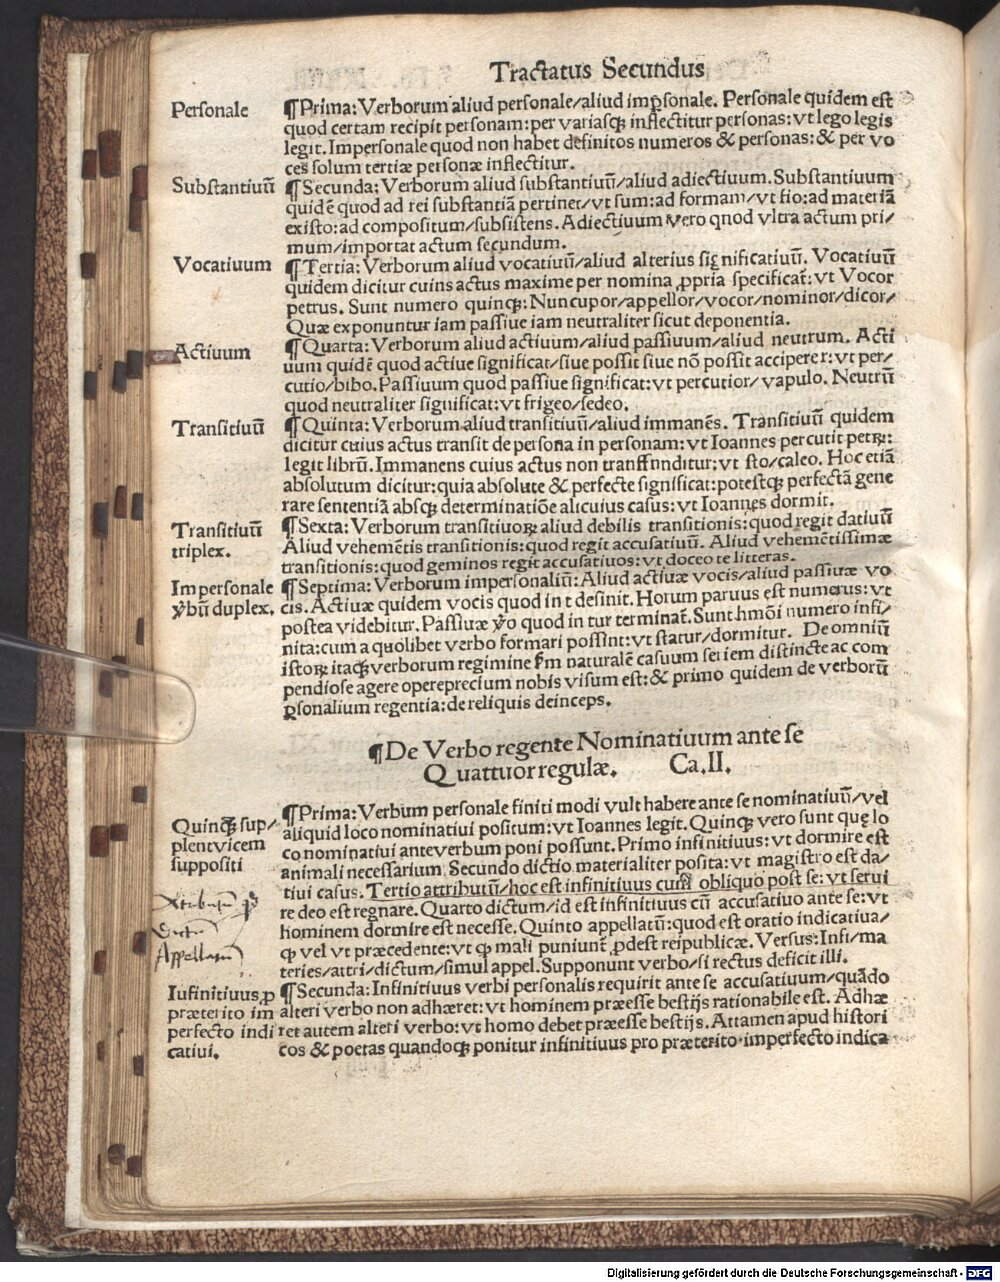 Tractatus Secundus
Personale
¶Prima: Verborum aliud personale/aliud imꝑsonale. Personale quidem est
quod certam recipit personam: per variasqꝫ inflectitur personas: vt lego legis
legit. Impersonale quod non habet definitos numeros & personas: & per vo
ces solum tertiæ personæ inflectitur.
Substantiuū
¶Secunda: Verborum aliud substantiuū/aliud adiectiuum. Substantiuum
quidē quod ad rei substantiā pertinet/vt sum: ad formam/vt fio: ad materiā
existo: ad compositum/subsistens. Adiectiuum vero qnod vltra actum pri/
mum/importat actum secundum.
Vocatiuum
¶Tertia: Verborum aliud vocatiuū/aliud alterius significatiuū. Vocatiuū
quidem dicitur cuius actus maxime per nomina ꝓpria specificat᷑: vt Vocor
petrus. Sunt numero quinqꝫ: Nuncupor/appellor/vocor/nominor/dicor/
Quæ exponuntur iam passiue iam neutraliter sicut deponentia.
Actiuum
¶Quarta: Verborum aliud actiuum/aliud passiuum/aliud neutrum. Acti
uum quidē quod actiue significat/siue possit siue nō possit accipere r: vt per/
cutio/bibo. Passiuum quod passiue significat: vt percutior/vapulo. Neutrū
quod neutraliter significat: vt frigeo/sedeo.
Transitiuū
¶Quinta: Verborum aliud transitiuū/aliud immanēs. Transitiuū quidem
dicitur cuius actus transit de persona in personam: vt Ioannes percutit petrꝝ:
legit librū. Immanens cuius actus non transfnnditur: vt sto/caleo. Hoc etiā
absolutum dicitur: quia absolute & perfecte significat: potestqꝫ perfectā gene
rare sententiā absqꝫ determinatiōe alicuius casus: vt Ioannes dormit.
Transitiuū
triplex.
¶Sexta: Verborum transitiuoꝝ aliud debilis transitionis: quod regit datiuū
Aliud vehemētis transitionis: quod regit accusatiuū. Aliud vehemētissimæ
transitionis: quod geminos regit accusatiuos: vt doceo te litteras.
Impersonale
v̄bū duplex.
¶Septima: Verborum impersonaliū: Aliud actiuæ vocis/aliud passiuæ vo
cis. Actiuæ quidem vocis quod in t desinit. Horum paruus est numerus: vt
postea videbitur. Passiuæ v̄o quod in tur terminat᷑. Sunt hmōi numero infi/
nita: cum a quolibet verbo formari possint: vt statur/dormitur. De omniū
istoꝝ itaqꝫ verborum regimine ẜm naturalē casuum seriem distincte ac com
pendiose agere opereprecium nobis visum est: & primo quidem de verborū
ꝑsonalium regentia: de reliquis deinceps.
¶De Verbo regente Nominatiuum ante se
Quattuor regulæ. Ca.II.
¶Prima: Verbum personale finiti modi vult habere ante se nominatiuū/vel
aliquid loco nominatiui positum: vt Ioannes legit. Quinqꝫ vero sunt quę lo
co nominatiui anteverbum poni possunt. Primo infinitiuus: vt dormire est
animali necessarium Secundo dictio materialiter posita: vt magistro est da/
tiui casus. Tertio attributū/hoc est infinitiuus cum obliquo post se: vt serui
re deo est regnare. Quarto dictum/id est infinitiuus cū accusatiuo ante se: vt
hominem dormire est necesse. Quinto appellatū: quod est oratio indicatiua/
ꝙ vel vt præcedente: vt ꝙ mali puniunt᷑ ꝓdest reipublicæ. Versus: Infi/ma
teries/attri/dictum/simul appel. Supponunt verbo/si rectus deficit illi.
Quinqꝫ sup/
plent vicem
suppositi
Dictum
Appellatum
Iufinitiuus ꝓ
præterito im
perfecto indi
catiui.
¶Secunda: Infinitiuus verbi personalis requirit ante se accusatiuum/quādo
alteri verbo non adhæret: vt hominem præesse bestijs rationabile est. Adhæ
ret autem alteri verbo: vt homo debet præesse bestijs. Attamen apud histori
cos & poetas quandoqꝫ ponitur infinitiuus pro præterito imperfecto indica
Digitalisierung gefördert durch die Deutsche Forschungsgemeinschaft - DFG